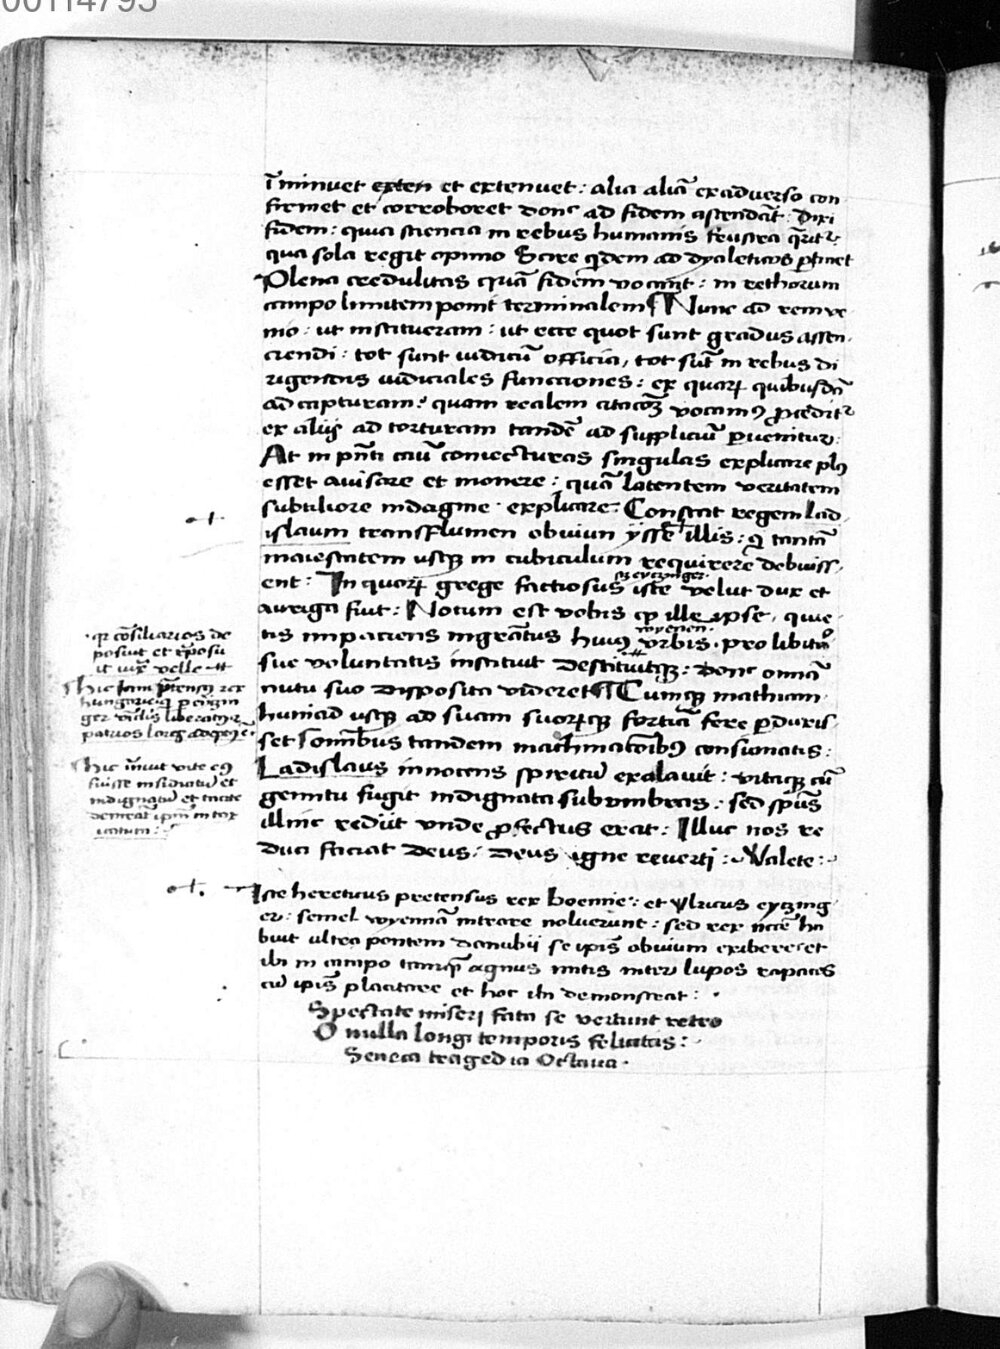 00114795
īminuet exten et extenuet : alia aliā exaduerso con
firmet et corroboret donc ad fidem astendāt : Dixi
fidem : quia sciencia in rebus humanis frustra q̄rit᷑
qua sola regit opinio Scire q̄dem ad dyaleticos ꝑtinet
Plena credulitas quā fidem vocant : in rethorum
campo limitem ponit terminalem ¶ Nunc ad rem ve
nio : ut institueram : ut ecce quot sunt gradus assen
ciendi : tot sunt iudicū officia, tot sūt in rebus di
rigendis iudiciales functiones : ex quaꝝ quibusdā
ad capturam : quam realem citacōꝫ vocamꝰ ꝓcedit᷑
ex alijs ad torturam tandē ad suppliciū ꝑuenitur :
At in pn̄ti cāu coniecturas singulas explicare plꝰ
esset auisare et monere : quā latentem veritatem
subtiliore indagine explicare : Constat regem Lad
islaum trans flumen obuiun ysse illis : q̄ tantā
maiestatem vsqꝫ in cubiculum requirere debuiss
ent : In quoꝝ grege factiosus iste velut dux et
eyczinger
auriga fuit : Notum est vobis ꝙ ille ipse quie
tis impaciens ingrātus huiꝰ vrbis pro libitu
wyenen
sue voluntatis instituit destituitqꝫ : donc omnā
nutu suo disposita videret ¶ Cumqꝫ mathiam
huniad vsqꝫ ad suam suoꝝqꝫ fortiā fere ꝑduxis
set somnibus tandem mathinacōibꝰ consionatis :
Ladislaus innocens spiritū exalauit : vitaqꝫ cū
gemitu fugit indignata sub vmbras : sed spūs
illinc redijt vnde ꝓfectus erat : Illuc nos re
duci faciat deus : deus igne reuerti : Valete :
·qr cōsiliarios de
posiut et rēposu
it iux̄ velle
hic iam p̄tensꝰ rex
hungarie q̄ ꝑ eiczin
ger vīclis liberatur
patrios lares adepꝰ ē
hic īnuit vite eiꝰ
fuisse insidiatū et
indignatū et tacite
denotat ipm̄ intox
icatum :
Iste hereticus pretensus rex boemie : et vlricus eyczing
er : semel wyennā intrare noluerunt : sed rex nēce ha
buit vltra pontem danubij se ipīs obuium exibere et
ibi in campo tamqꝫ agnus mitis inter lupos rapaces
cū ipīs placitare et hoc ibi demonstrat :
Spectate miseri fata se vertunt retro
O nulla longi temporis felicitas :
Seneca tragedia Octaua ·